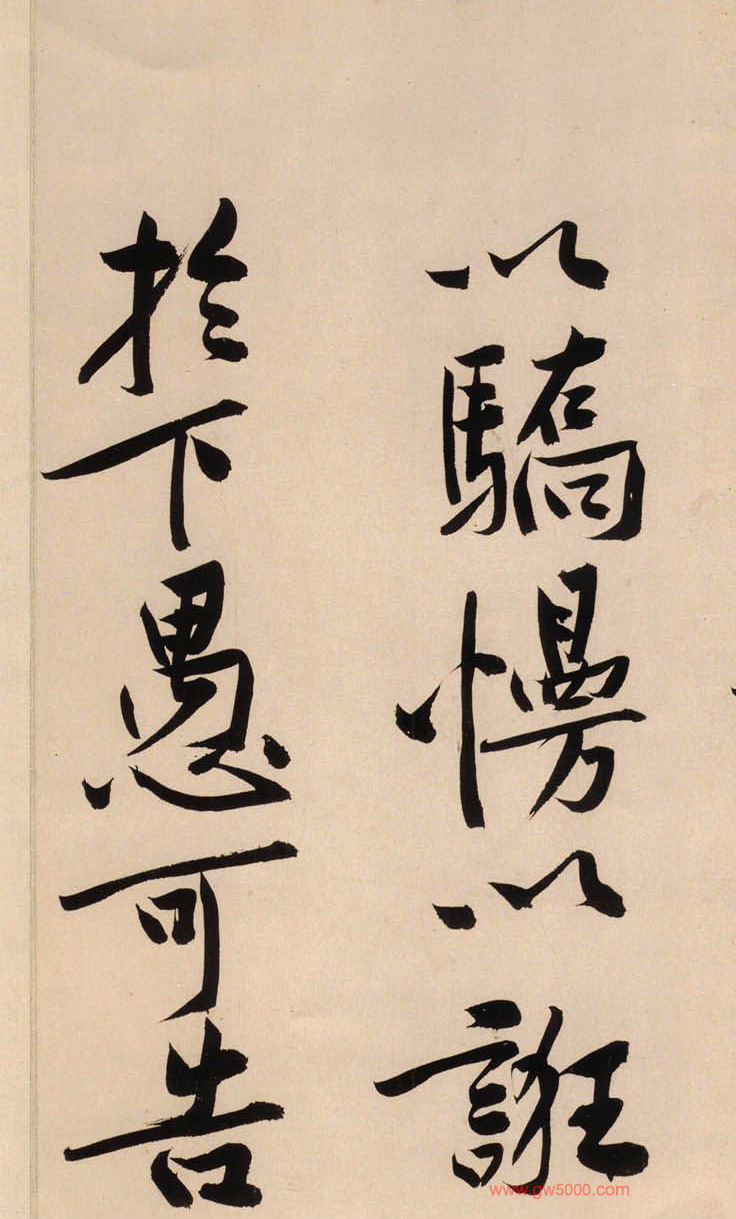 以驕慢以誑
於下愚可告
www.gw5000.com